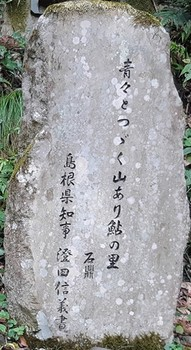 青々とつゞく山あり鮎の里
石鼎
島根県知事 澄田信義書